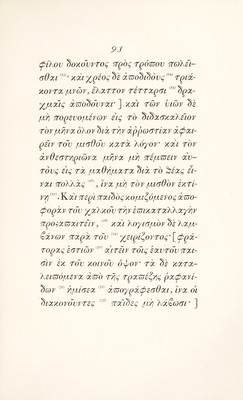 93
φίλου δοκοῦντος πρὸς τρόπου πωλεῖ-
σθαι· καὶ χρέος δὲ ἀποδιδοὺς τριά-
κοντα μνῶν, ἔλαττον τέτταρσι δρα-
χμαῖς ἀποδοῦναι· ] καὶ τῶν υἱῶν δὲ
μὴ πορευομένων εἰς τὸ διδασκαλεῖον
τὸν μῆνα ὅλον διὰ τὴν ἀῤῥωστίαν ἀφαι-
ρεῖν τοῦ μισθοῦ κατὰ λόγον· καὶ τὸν
ἀνθεστηριῶνα μῆνα μὴ πέμπειν αὐ-
τοὺς εἰς τὰ μαθήματα διὰ τὸ θέας εἶ-
ναι πολλὰς, ἵνα μὴ τὸν μισθὸν ἐκτί-
νῃ. Καὶ περὶ παιδὸς κομιζόμενος ἀπο-
φορὰν τοῦ χαλκοῦ τὴν ἐπικαταλλαγὴν
προσαπαιτεῖν, καὶ λογισμὸν δὲ λαμ-
βάνων παρὰ τοῦ χειρίζοντος· [φρά-
τορας ἑστιῶν αἰτεῖν τοῖς ἑαυτοῦ παι-
σὶν ἐκ τοῦ κοινοῦ ὄψον· τὰ δὲ κατα-
λειπόμενα ἀπὸ τῆς τραπέζης ῥαφανί-
δων ἡμίσεα ἀπογράφεσθαι, ἵνα οἱ
διακονοῦντες παῖδες μὴ λάβωσι· ]